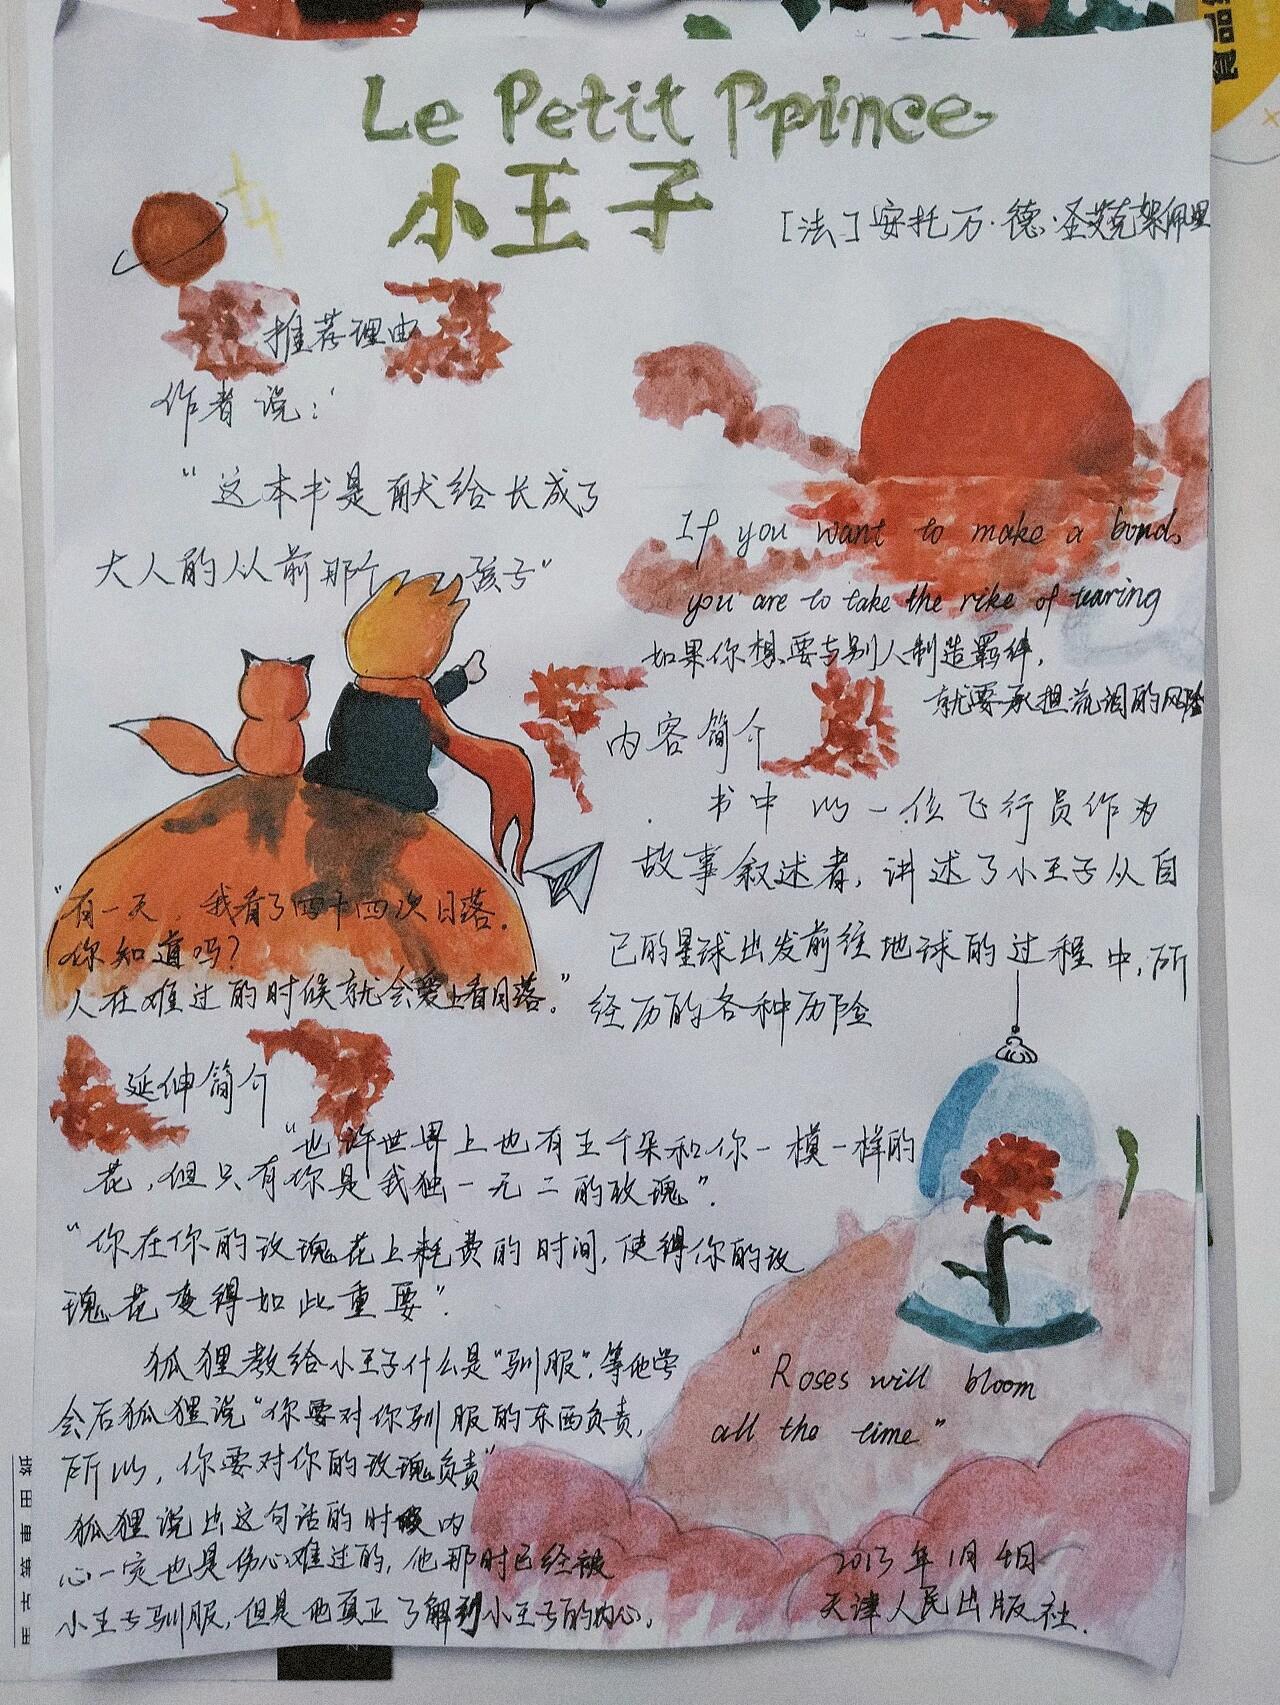 Le Petit Ppince
小王子
[法]安托万·德·圣埃克絮佩里
推荐理由
作者说：
“这本书是献给长成了
大人的从前那个孩子”
If you want to make a bond,
you are to take the rike of tearing
如果你想要与别人制造羁绊，
就要承担流泪的风险
内容简介
书中以一位飞行员作为
故事叙述者，讲述了小王子从自
己的星球出发前往地球的过程中，所
经历的各种历险
“有一天，我看了四十四次日落。
你知道吗？
人在难过的时候就会爱上看日落。”
延伸简介
“也许世界上也有五千朵和你一模一样的
花，但只有你是我独一无二的玫瑰”。
“你在你的玫瑰花上耗费的时间，使得你的玫
瑰花变得如此重要”。
狐狸教给小王子什么是“驯服”，等他学
会后狐狸说“你要对你驯服的东西负责，
所以，你要对你的玫瑰负责”
狐狸说出这句话的时候内
心一定也是伤心难过的，他那时已经被
小王子驯服，但是他真正了解到小王子的内心。
“Roses will bloom
all the time”
2013年1月4日
天津人民出版社.